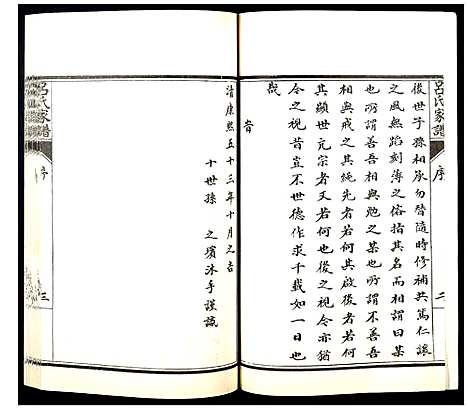 呂氏家譜
序
二
後世子孫相承勿替隨時修補共篤仁讓
之風無蹈刻薄之俗指其名而相謂曰某
也所謂善吾相與勉之某也所謂不善吾
相與戒之其繩先者若何其啟後者若何
其顯世亢宗者又若何也後之視今亦猶
今之視昔豈不世德作求千載如一日也
哉
旹
清康熙五十三年十月之吉
十世孫 之璸沐手謹識
呂氏家譜
序
三